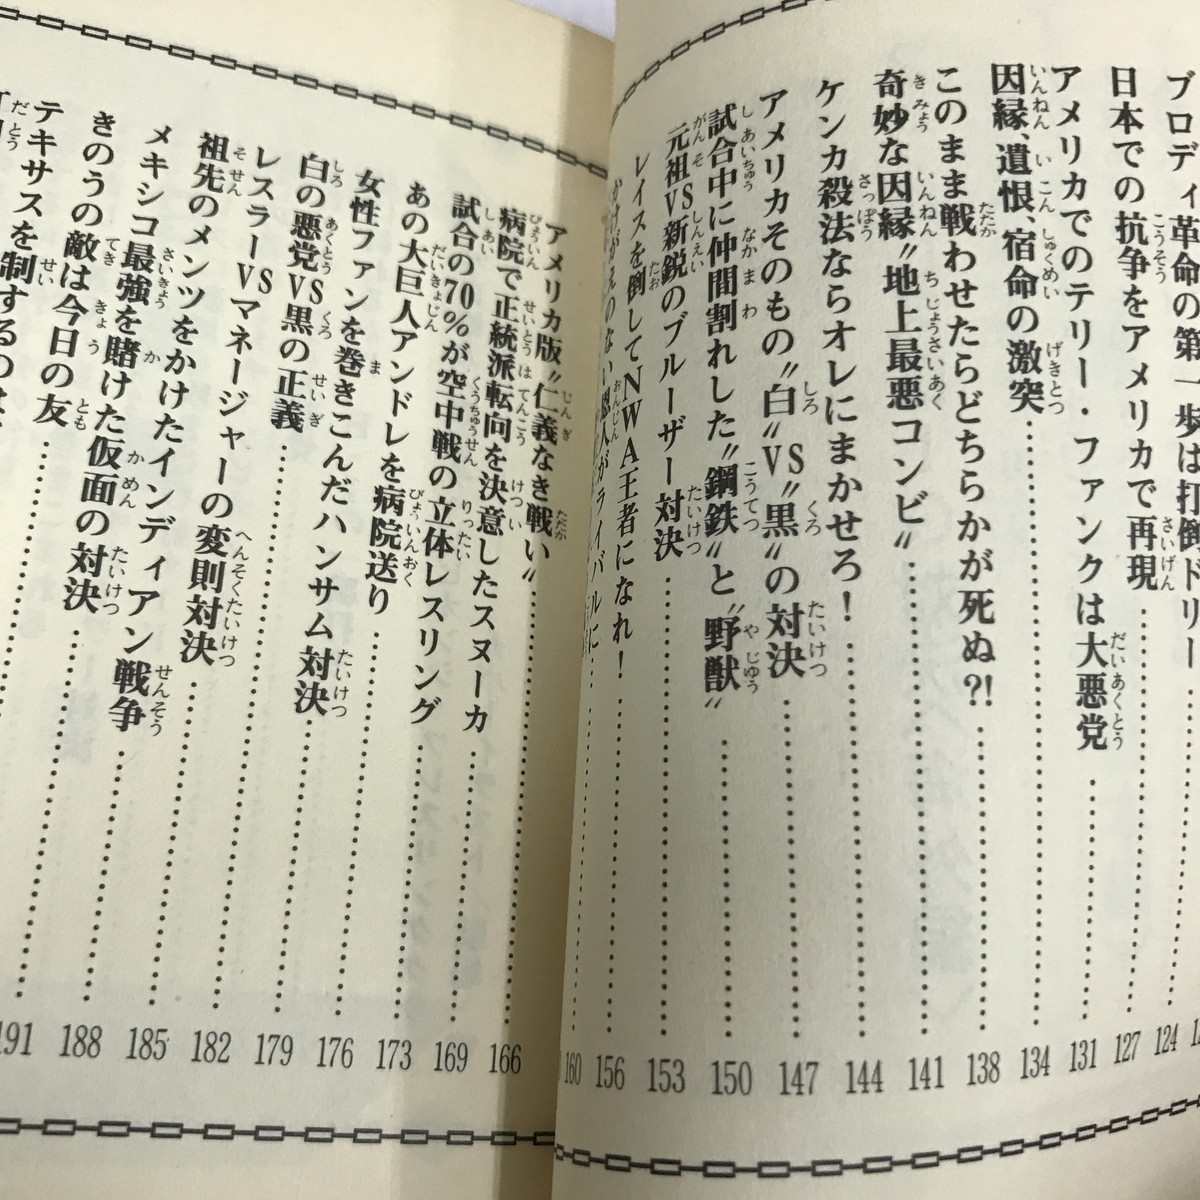 ブロディ革命の第一歩は打倒ドリー……124
日本での抗争をアメリカで再現……127
アメリカでのテリー・ファンクは大悪党……131
因縁、遺恨、宿命の激突……134
このまま戦わせたらどちらかが死ぬ?!……138
奇妙な因縁〝地上最悪コンビ〟……141
ケンカ殺法ならオレにまかせろ!……144
アメリカそのもの〝白〟VS〝黒〟の対決……147
試合中に仲間割れした〝鋼鉄〟と〝野獣〟……150
元祖VS新鋭のブルーザー対決……153
レイスを倒してNWA王者になれ!……156
かけがえのない恩人がライバルに……160
アメリカ版〝仁義なき戦い〟……166
病院で正統派転向を決意したスヌーカ……169
試合の70%が空中戦の立体レスリング……173
あの大巨人アンドレを病院送り……176
女性ファンを巻きこんだハンサム対決……179
白の悪党VS黒の正義……182
レスラーVSマネージャーの変則対決……185
祖先のメンツをかけたインディアン戦争……188
メキシコ最強を賭けた仮面の対決……191
きのうの敵は今日の友
テキサスを制するのは